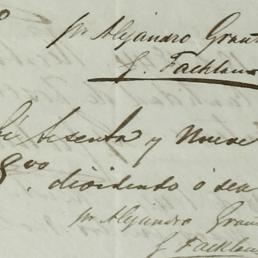 pr Alejandro Grañ
J. Fachlan
sesenta y Nueve
8vo dividendo o sea
pr Alejandro Grañ
J Fachlan